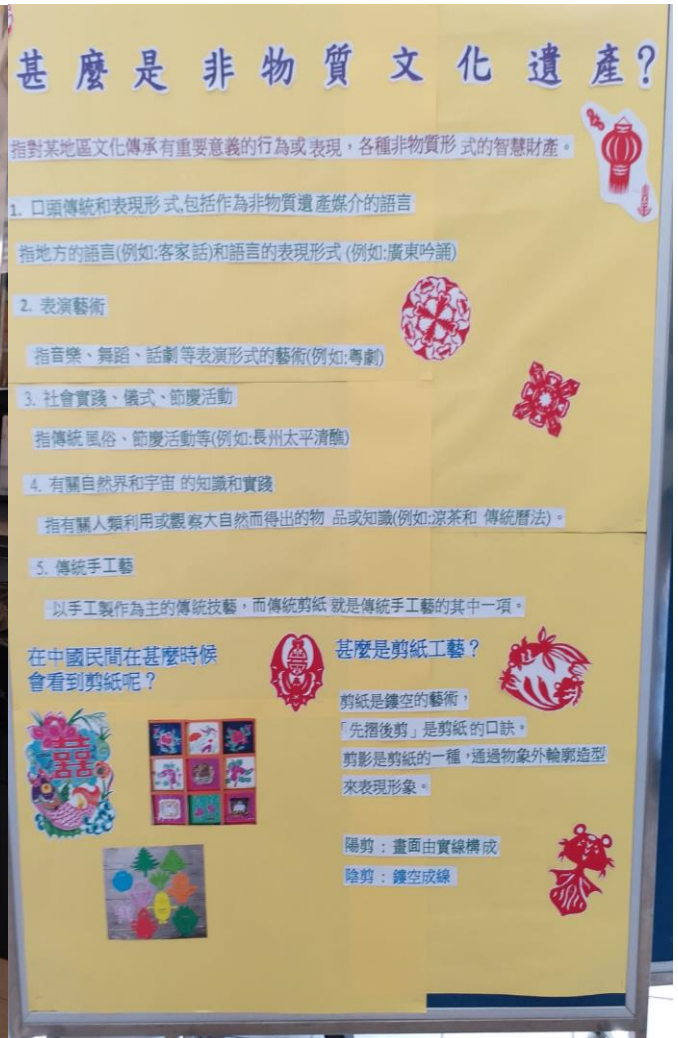 甚麼是非物質文化遺產?
指對某地區文化傳承有重要意義的行為或表現，各種非物質形式的智慧財產。
1. 口頭傳統和表現形式,包括作為非物質遺產媒介的語言
指地方的語言(例如:客家話)和語言的表現形式 (例如:廣東吟誦)
2. 表演藝術
指音樂、舞蹈、話劇等表演形式的藝術(例如:粵劇)
3. 社會實踐、儀式、節慶活動
指傳統風俗、節慶活動等(例如:長州太平清醮)
4. 有關自然界和宇宙的知識和實踐
指有關人類利用或觀察大自然而得出的物品或知識(例如:涼茶和傳統曆法)。
5. 傳統手工藝
以手工製作為主的傳統技藝，而傳統剪紙就是傳統手工藝的其中一項。
在中國民間在甚麼時候
會看到剪紙呢？
囍
甚麼是剪紙工藝？
剪紙是鏤空的藝術，
「先摺後剪」是剪紙的口訣。
剪影是剪紙的一種，通過物象外輪廓造型
來表現形象。
陽剪：畫面由實線構成
陰剪：鏤空成線